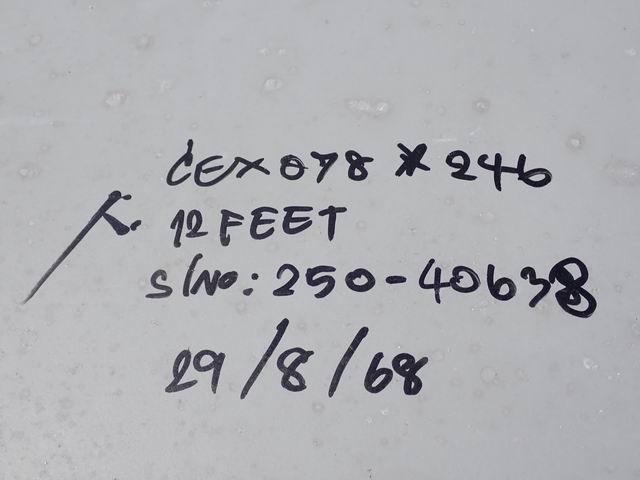 CEX078*246
12 FEET
S/NO: 250-40638
29/8/68